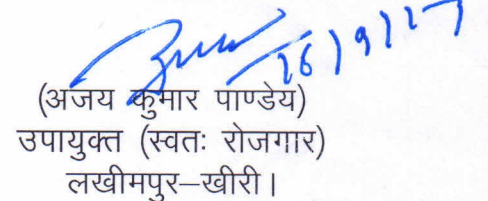 (अजय कुमार पाण्डेय)
उपायुक्त (स्वतः रोजगार)
लखीमपुर–खीरी।